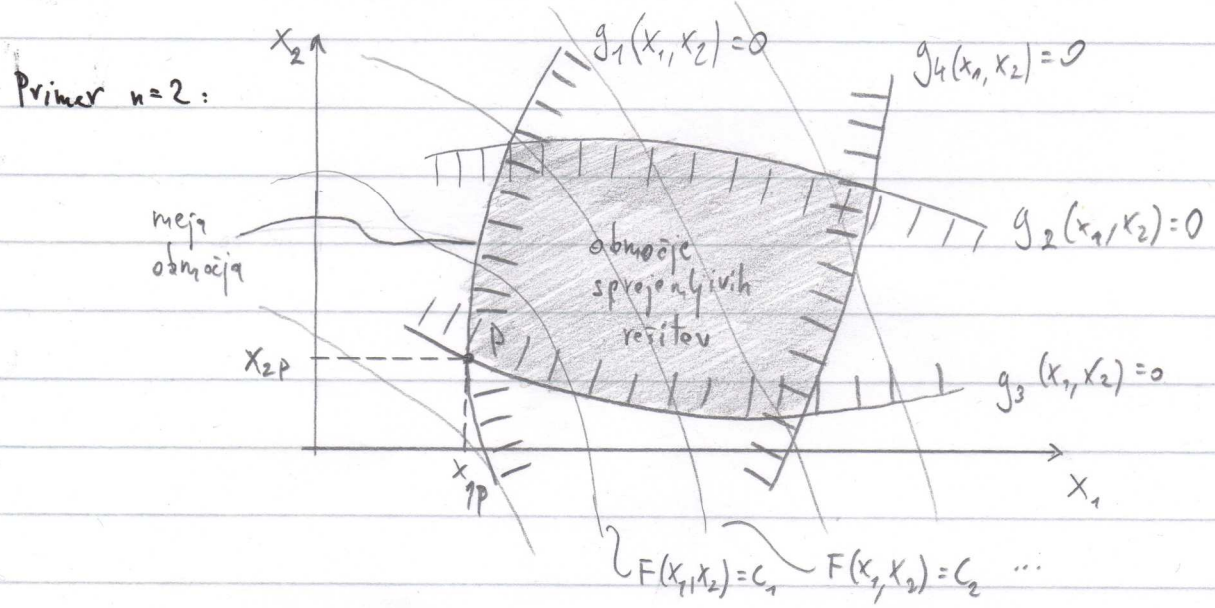 x₂
g₁(x₁,x₂)=0
g₄(x₁,x₂)=0
Primer n=2:
meja
območja
območje
sprejemljivih
rešitev
g₂(x₁,x₂)=0
P
x₂ₚ
g₃(x₁,x₂)=0
x₁ₚ
x₁
F(x₁,x₂)=C₁
F(x₁,x₂)=C₂ ...